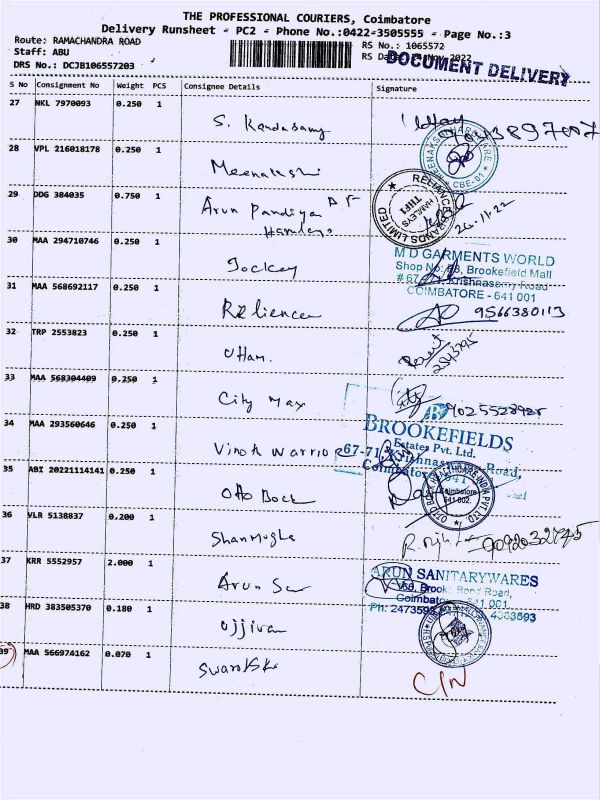 THE PROFESSIONAL COURIERS, Coimbatore
Delivery Runsheet - PC2 - Phone No.:0422-3505555 - Page No.:3
Route: RAMACHANDRA ROAD
RS No.: 1065572
Staff: ABU
RS Da Nov 2022
DOCUMENT DELIVERY
DRS No.: DCJB106557203
S No Consignment No Weight PCS Consignee Details Signature
27 NKL 7970093 0.250 1 S. Kandasamy
28 VPL 216018178 0.250 1 Meenakshi
CBE-01
29 DDG 384035 0.750 1 Arun Pandiyan
Hamleys
RELIANCE BRANDS LIMITED
HAMLEYS
26-11-22
30 MAA 294710746 0.250 1 Jockey
M D GARMENTS WORLD
Shop No: Brookefield Mall
# 67 Krishnasamy Road
COIMBATORE - 641 001
31 MAA 568692117 0.250 1 Reliance
9566380113
32 TRP 2553823 0.250 1
33 MAA 568304409 0.250 1 City Max
34 MAA 293560646 0.250 1 Vinoth Warrior
BROOKEFIELDS
Estates Pvt. Ltd.
67-71, Krishnaswamy Road,
Coimbatore 641
35 ABI 20221114141 0.250 1 Otto Bock
OTTO BOCK HEALTHCARE INDIA PVT LTD
Coimbatore
641 002.
36 VLR 5138837 0.200 1
37 KRR 5552957 2.000 1 Arun
ARUN SANITARYWARES
Brooke Bond Road,
Coimbatore 641 001.
Ph: 2473593 4363593
38 HRD 383505370 0.180 1 Ujjivan
39 MAA 566974162 0.070 1 Swarovski
C/N